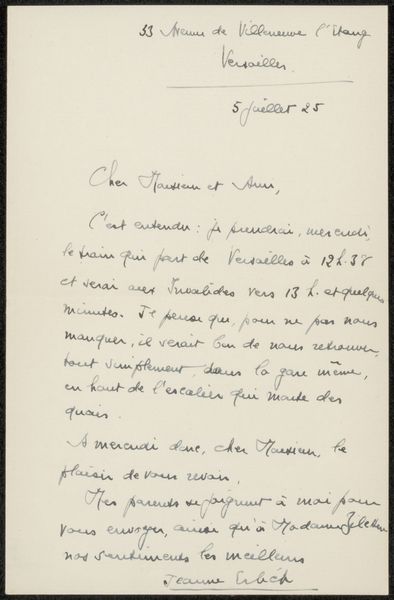 33 Avenue de Villeneuve l'Etang
Versailles.
5 juillet 25
Cher Monsieur et Ami,
C'est entendu : je prendrai, mercredi,
le train qui part de Versailles à 12 h. 38
et serai aux Invalides vers 13 h. et quelques
minutes. Je pense que, pour ne pas nous
manquer, il serait bon de nous retrouver,
tout simplement, dans la gare même,
en haut de l'escalier qui monte des
quais.
A mercredi donc, cher Monsieur, le
plaisir de vous revoir.
Mes parents se joignent à moi pour
vous envoyer, ainsi qu'à Madame
nos sentiments les meilleurs
Jeanne